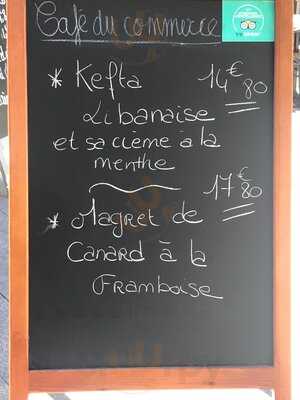 Café du commerce
* Kefta 14€80
Libanaise
et sa crème à la
menthe
17€80
* Magret de
Canard à la
Framboise